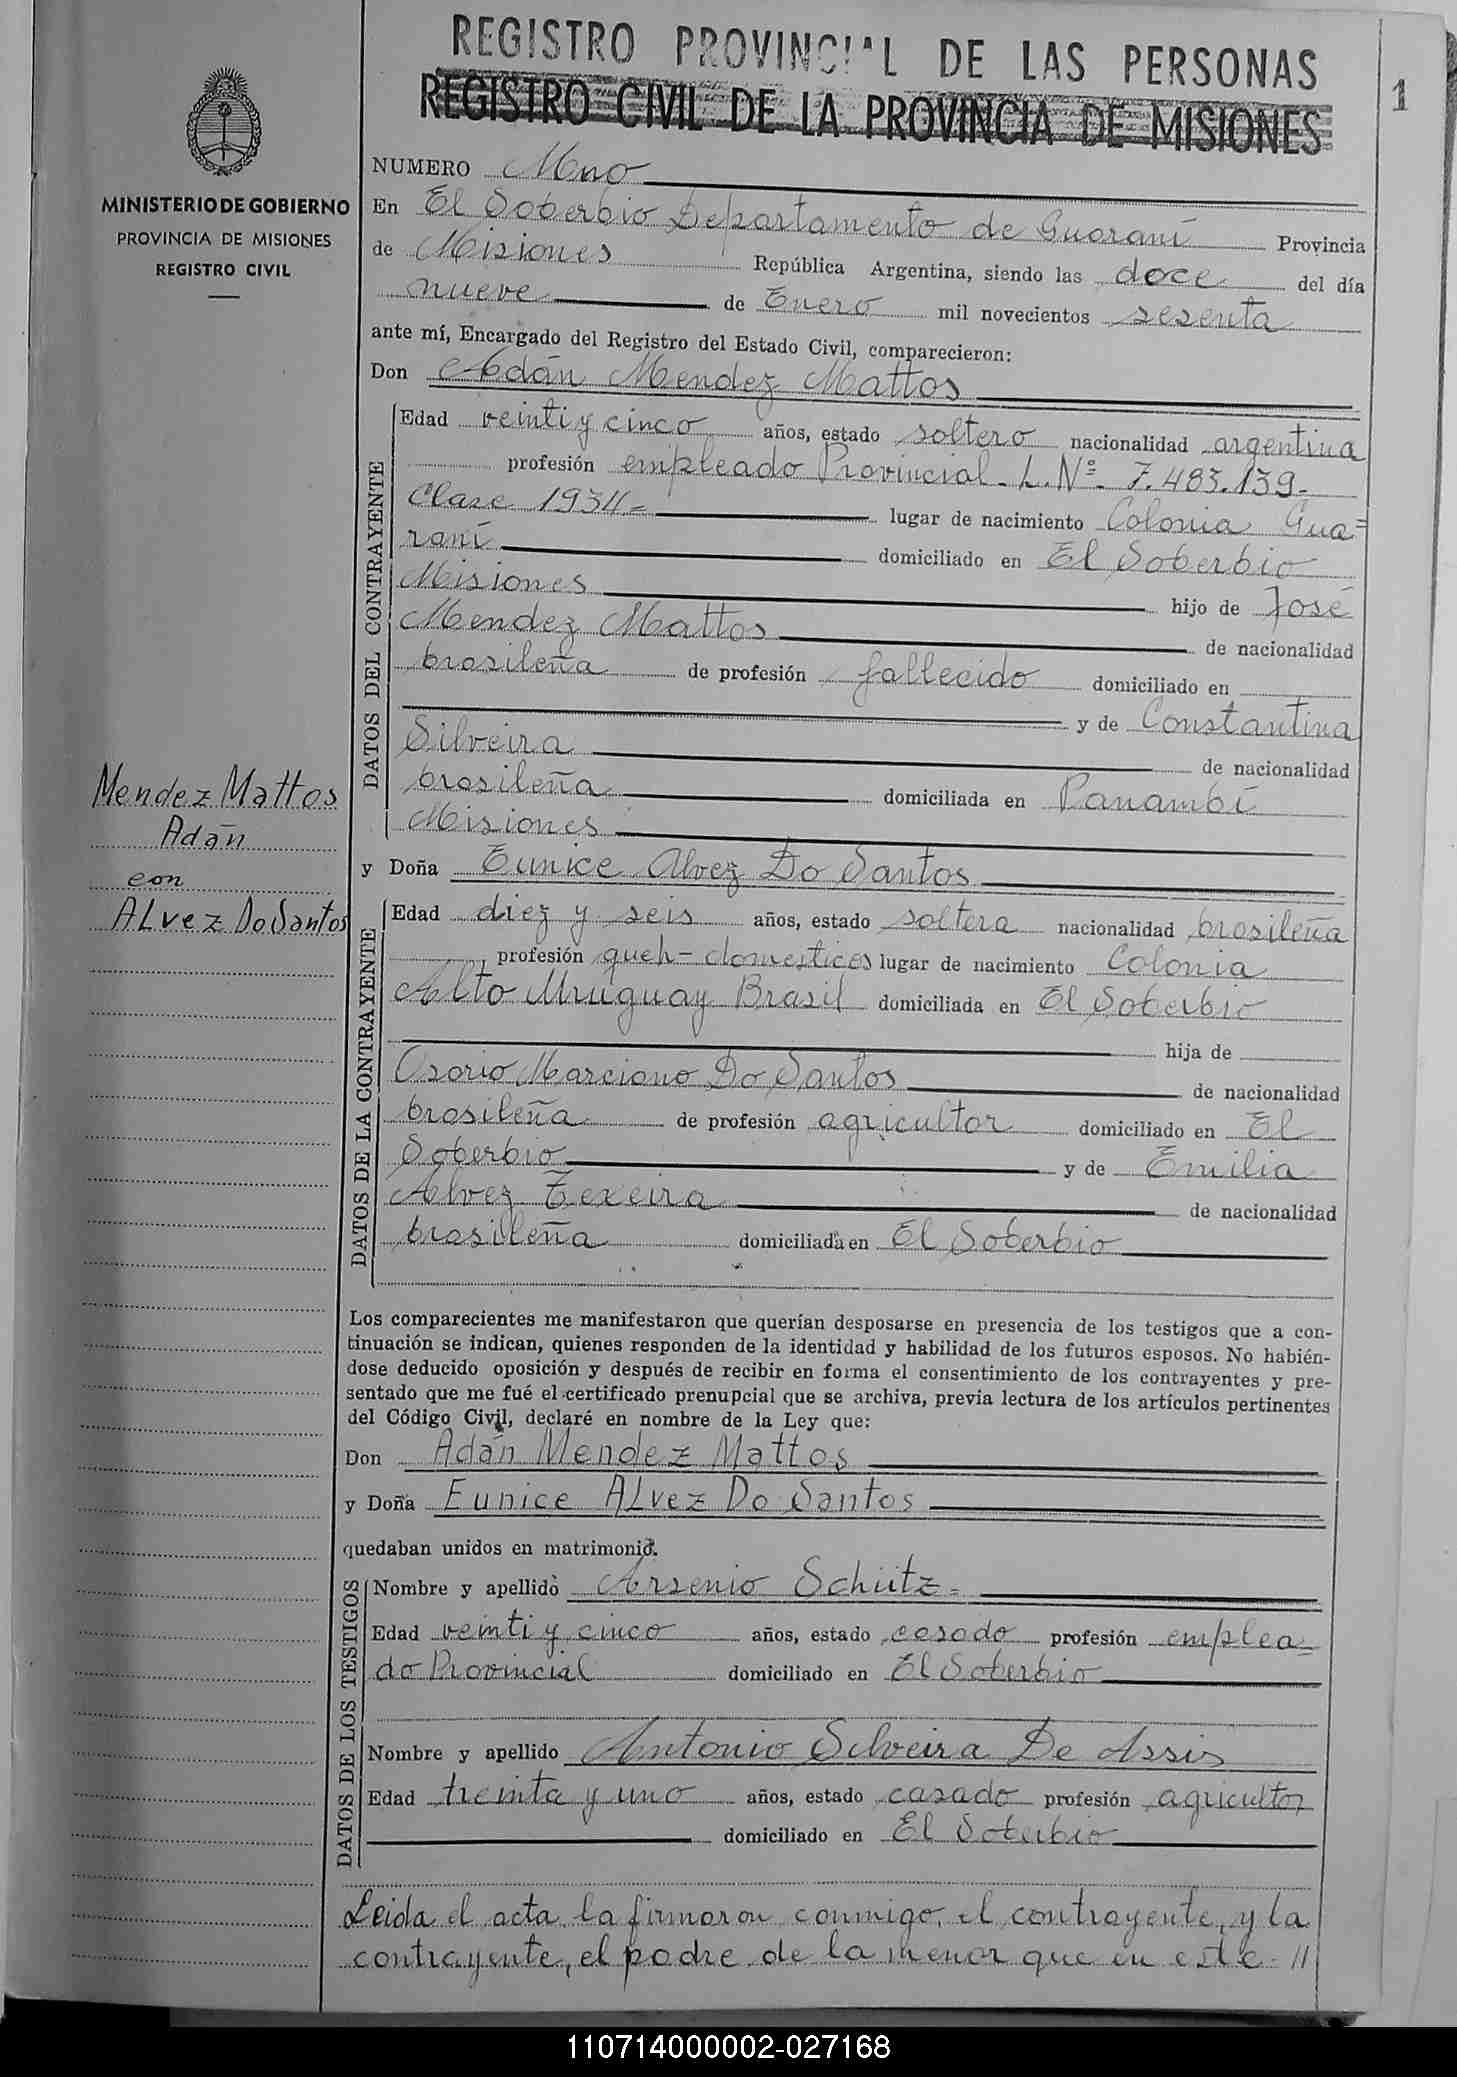 REGISTRO PROVINCIAL DE LAS PERSONAS
REGISTRO CIVIL DE LA PROVINCIA DE MISIONES
1
MINISTERIO DE GOBIERNO
PROVINCIA DE MISIONES
REGISTRO CIVIL
Mendez Mattos
Adán
con
ALvez Do Santos
NUMERO Uno
En El Soberbio Departamento de Guaraní Provincia
de Misiones República Argentina, siendo las doce del día
nueve de Enero mil novecientos sesenta
ante mí, Encargado del Registro del Estado Civil, comparecieron:
Don Adán Mendez Mattos
DATOS DEL CONTRAYENTE
Edad veinti y cinco años, estado soltero nacionalidad argentina
profesión empleado Provincial - L. Nº - 7.483.139 -
Clase 1934 - lugar de nacimiento Colonia Gua=
raní domiciliado en El Soberbio
Misiones hijo de José
Mendez Mattos de nacionalidad
brasileña de profesión fallecido domiciliado en
y de Constantina
Silveira de nacionalidad
brasileña domiciliada en Panambí
Misiones
y Doña Eunice Alvez Do Santos
DATOS DE LA CONTRAYENTE
Edad diez y seis años, estado soltera nacionalidad brasileña
profesión queh-domesticos lugar de nacimiento Colonia
Alto Uruguay Brasil domiciliada en El Soberbio
hija de
Osorio Marciano Do Santos de nacionalidad
brasileña de profesión agricultor domiciliado en El
Soberbio y de Emilia
Alvez Texeira de nacionalidad
brasileña domiciliada en El Soberbio
Los comparecientes me manifestaron que querían desposarse en presencia de los testigos que a con-
tinuación se indican, quienes responden de la identidad y habilidad de los futuros esposos. No habién-
dose deducido oposición y después de recibir en forma el consentimiento de los contrayentes y pre-
sentado que me fué el certificado prenupcial que se archiva, previa lectura de los artículos pertinentes
del Código Civil, declaré en nombre de la Ley que:
Don Adán Mendez Mattos
y Doña Eunice ALvez Do Santos
quedaban unidos en matrimonio.
DATOS DE LOS TESTIGOS
Nombre y apellido Arsenio Schütz -
Edad veinti y cinco años, estado casado profesión emplea=
do Provincial domiciliado en El Soberbio
Nombre y apellido Antonio Silveira De Assis
Edad treinta y uno años, estado casado profesión agricultor
domiciliado en El Soberbio
Leida el acta la firmaron conmigo, el contrayente, y la
contrayente, el padre de la menor que en este - //
110714000002-027168